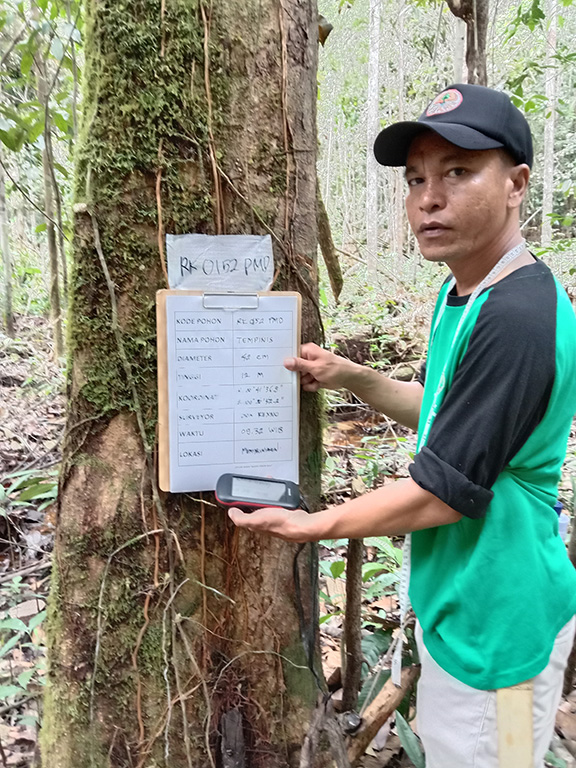 RK 0152 PMD
KODE POHON RK 0152 PMD
NAMA POHON TEMPINIS
DIAMETER 52 CM
TINGGI 12 M
KOORDINAT
SURVEYOR
WAKTU 09:32 WIB
LOKASI